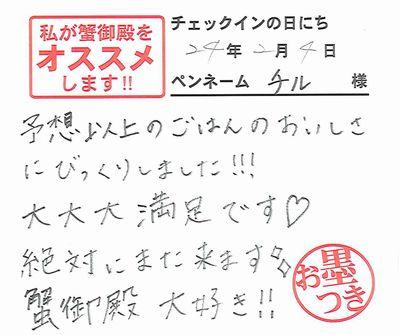 私が蟹御殿を
オススメ
します!!
チェックインの日にち
24年2月4日
ペンネーム チル 様
予想以上のごはんのおいしさ
にびっくりしました!!!
大大大満足です♡
絶対にまた来ます
蟹御殿 大好き!!
お墨つき